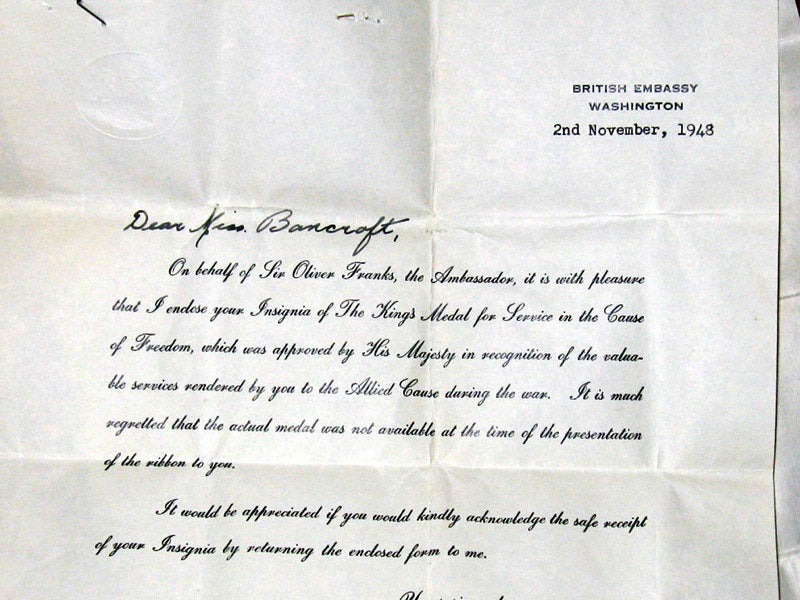 BRITISH EMBASSY
WASHINGTON
2nd November, 1948
Dear Miss. Bancroft,
On behalf of Sir Oliver Franks, the Ambassador, it is with pleasure
that I enclose your Insignia of The King's Medal for Service in the Cause
of Freedom, which was approved by His Majesty in recognition of the valua-
ble services rendered by you to the Allied Cause during the war. It is much
regretted that the actual medal was not available at the time of the presentation
of the ribbon to you.
It would be appreciated if you would kindly acknowledge the safe receipt
of your Insignia by returning the enclosed form to me.